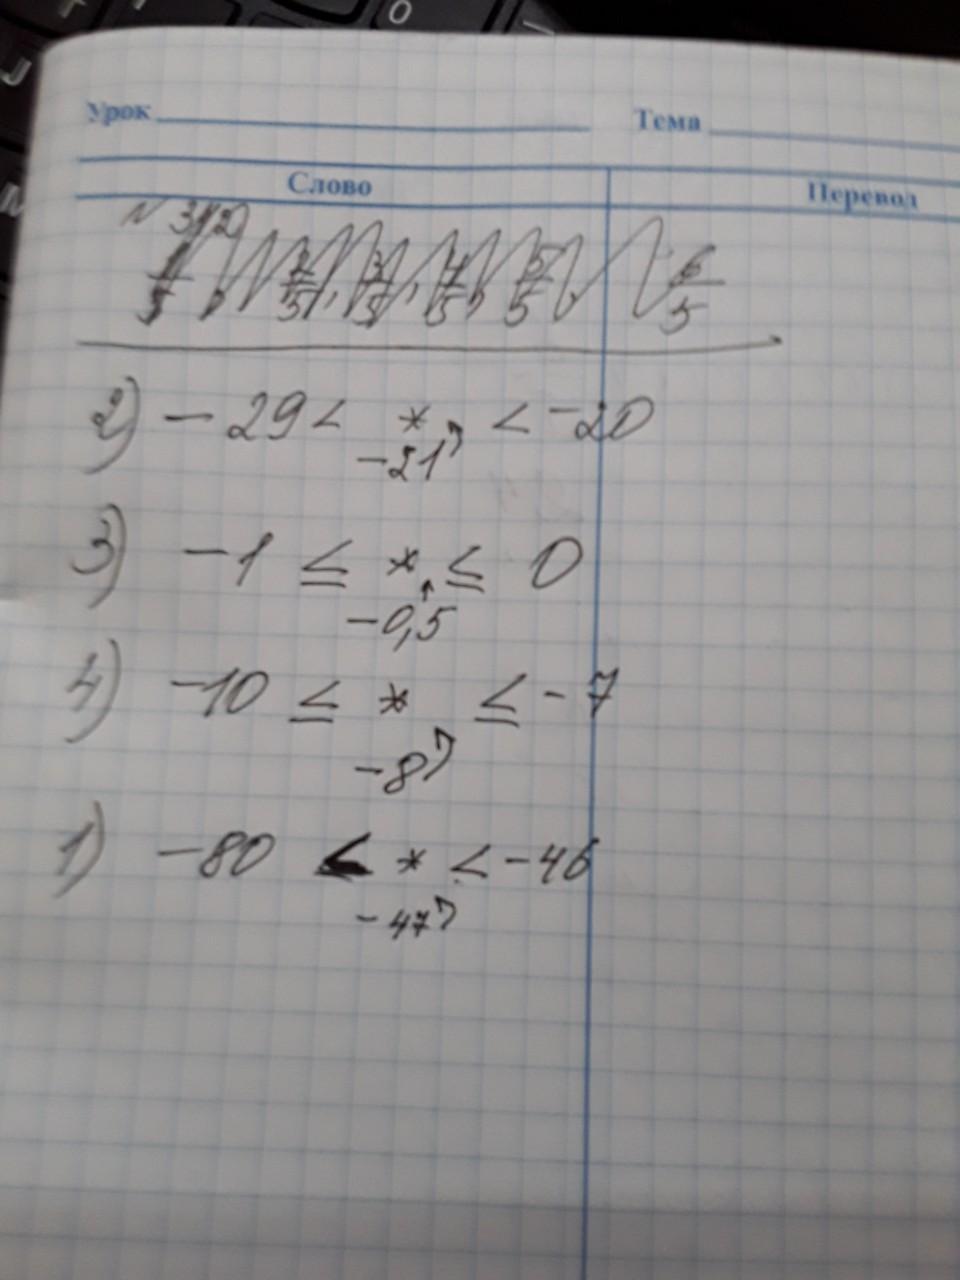 Урок Тема
Слово Перевод
2/5, 3/5, 4/5, 5/5, 6/5
2) - 29 < * < -20
-21
3) -1 ≤ * ≤ 0
-0,5
4) -10 ≤ * ≤ -7
-8
1) -80 < * < -46
-47